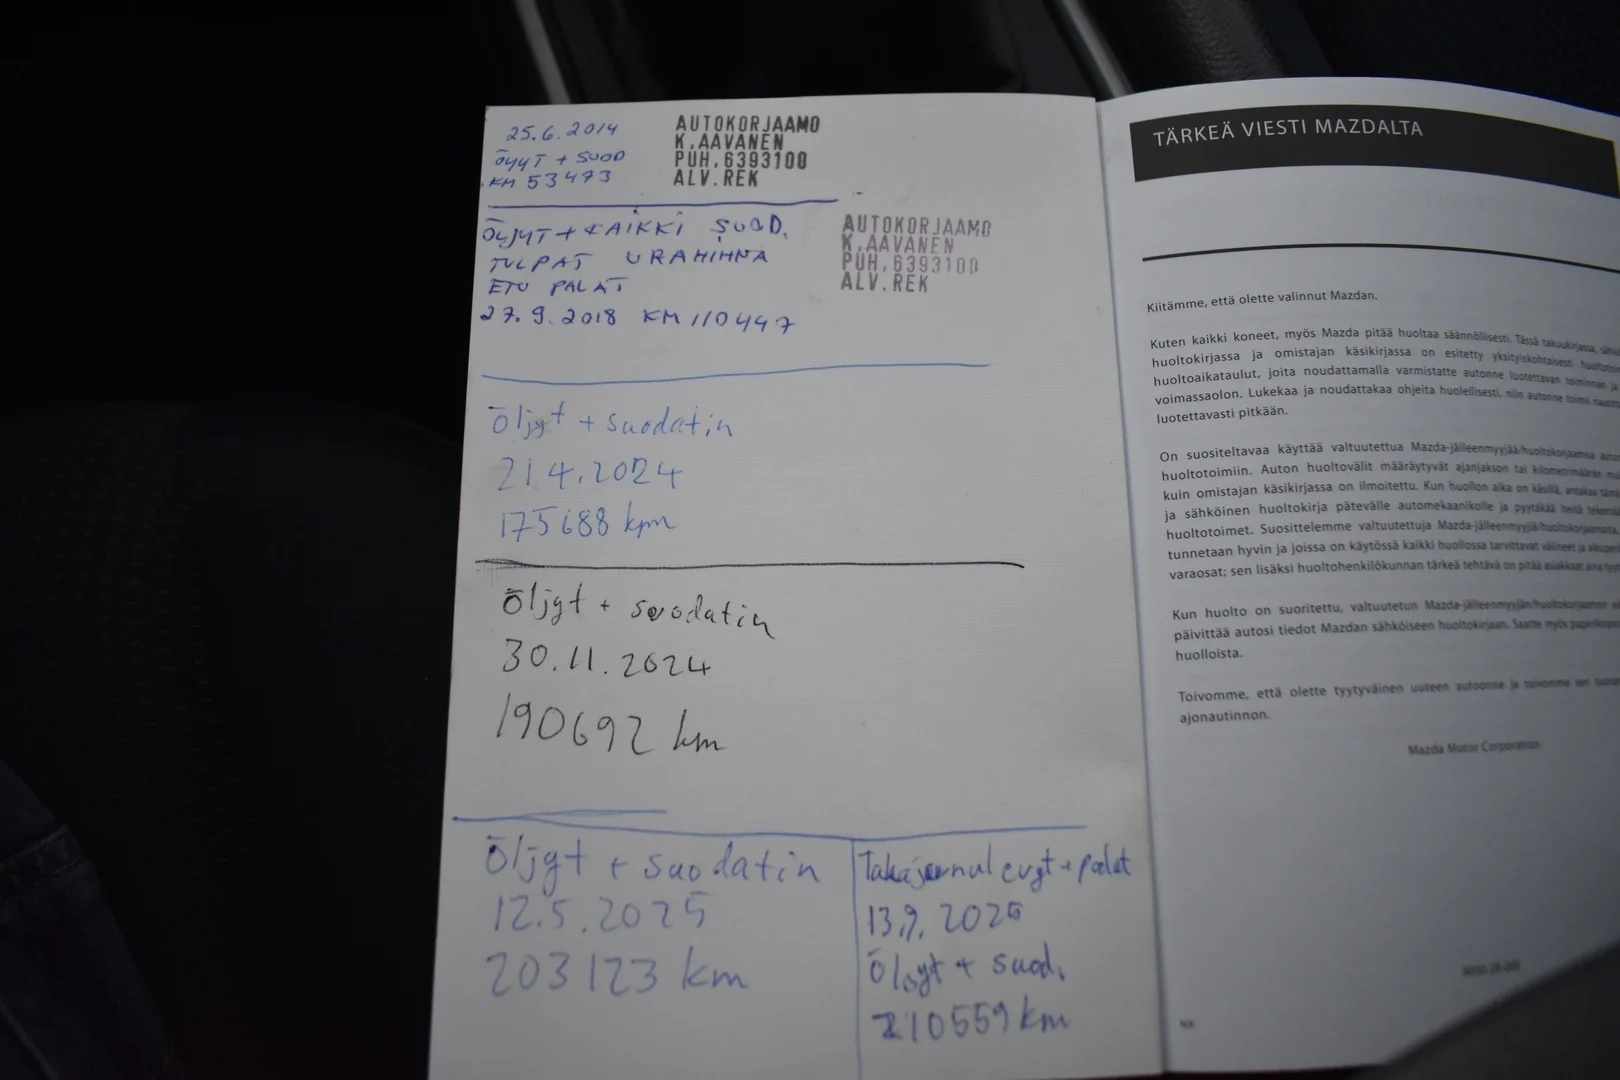 25.6.2014
ÖLJYT + SUOD
KM 53473
AUTOKORJAAMO
K.AAVANEN
PUH.6393100
ALV.REK
ÖLJYT + KAIKKI SUOD.
TULPAT URAHIHNA
ETU PALAT
27.9.2018 KM 110447
AUTOKORJAAMO
K.AAVANEN
PUH.6393100
ALV.REK
Öljyt + suodatin
21.4.2024
175688 km
Öljyt + suodatin
30.11.2024
190692 km
Öljyt + suodatin
12.5.2025
203123 km
Takajarrul evyt + palat
13.9.2025
Öljyt + suod.
210559 km
TÄRKEÄ VIESTI MAZDALTA
Kiitämme, että olette valinnut Mazdan.
Kuten kaikki koneet, myös Mazda pitää huoltaa säännöllisesti. Tässä takuukirjassa,
huoltokirjassa ja omistajan käsikirjassa on esitetty yksityiskohtaisesti
huoltoaikataulut, joita noudattamalla varmistatte autonne luotettavan toiminnan ja
voimassaolon. Lukekaa ja noudattakaa ohjeita huolellisesti, niin autonne toimii
luotettavasti pitkään.
On suositeltavaa käyttää valtuutettua Mazda-jälleenmyyjää/huoltokorjaamoa
huoltotoimiin. Auton huoltovälit määräytyvät ajanjakson tai kilometrimäärän
kuin omistajan käsikirjassa on ilmoitettu. Kun huollon aika on käsillä, antakaa tämä
ja sähköinen huoltokirja pätevälle automekaanikolle ja pyytäkää heitä
huoltotoimet. Suosittelemme valtuutettuja Mazda-jälleenmyyjiä/huoltokorjaamoita,
tunnetaan hyvin ja joissa on käytössä kaikki huollossa tarvittavat välineet ja
varaosat; sen lisäksi huoltohenkilökunnan tärkeä tehtävä on pitää asiakkaat aina
Kun huolto on suoritettu, valtuutetun Mazda-jälleenmyyjän/huoltokorjaamon
päivittää autosi tiedot Mazdan sähköiseen huoltokirjaan. Saatte myös
huolloista.
Toivomme, että olette tyytyväinen uuteen autoonne ja toivomme sen
ajonautinnon.
Mazda Motor Corporation